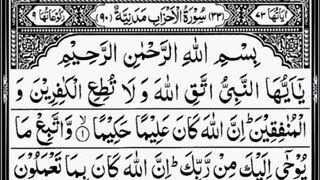 اٰیَاتُهَا ٧٣ (٣٣) سُوْرَةُ الْاَحْزَابِ مَدَنِيَّةٌ (٩٠) رُكُوْعَاتُهَا ٩
بِسْمِ اللّٰهِ الرَّحْمٰنِ الرَّحِيْمِ
يٰۤاَيُّهَا النَّبِيُّ اتَّقِ اللّٰهَ وَلَا تُطِعِ الْكٰفِرِيْنَ وَ
الْمُنٰفِقِيْنَ ؕ اِنَّ اللّٰهَ كَانَ عَلِيْمًا حَكِيْمًا ۙ﴿١﴾ وَّاتَّبِعْ مَا
يُوْحٰۤى اِلَيْكَ مِنْ رَّبِّكَ ؕ اِنَّ اللّٰهَ كَانَ بِمَا تَعْمَلُوْنَ